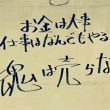 お金は大事
仕事はなんでもやる
魂は売らな